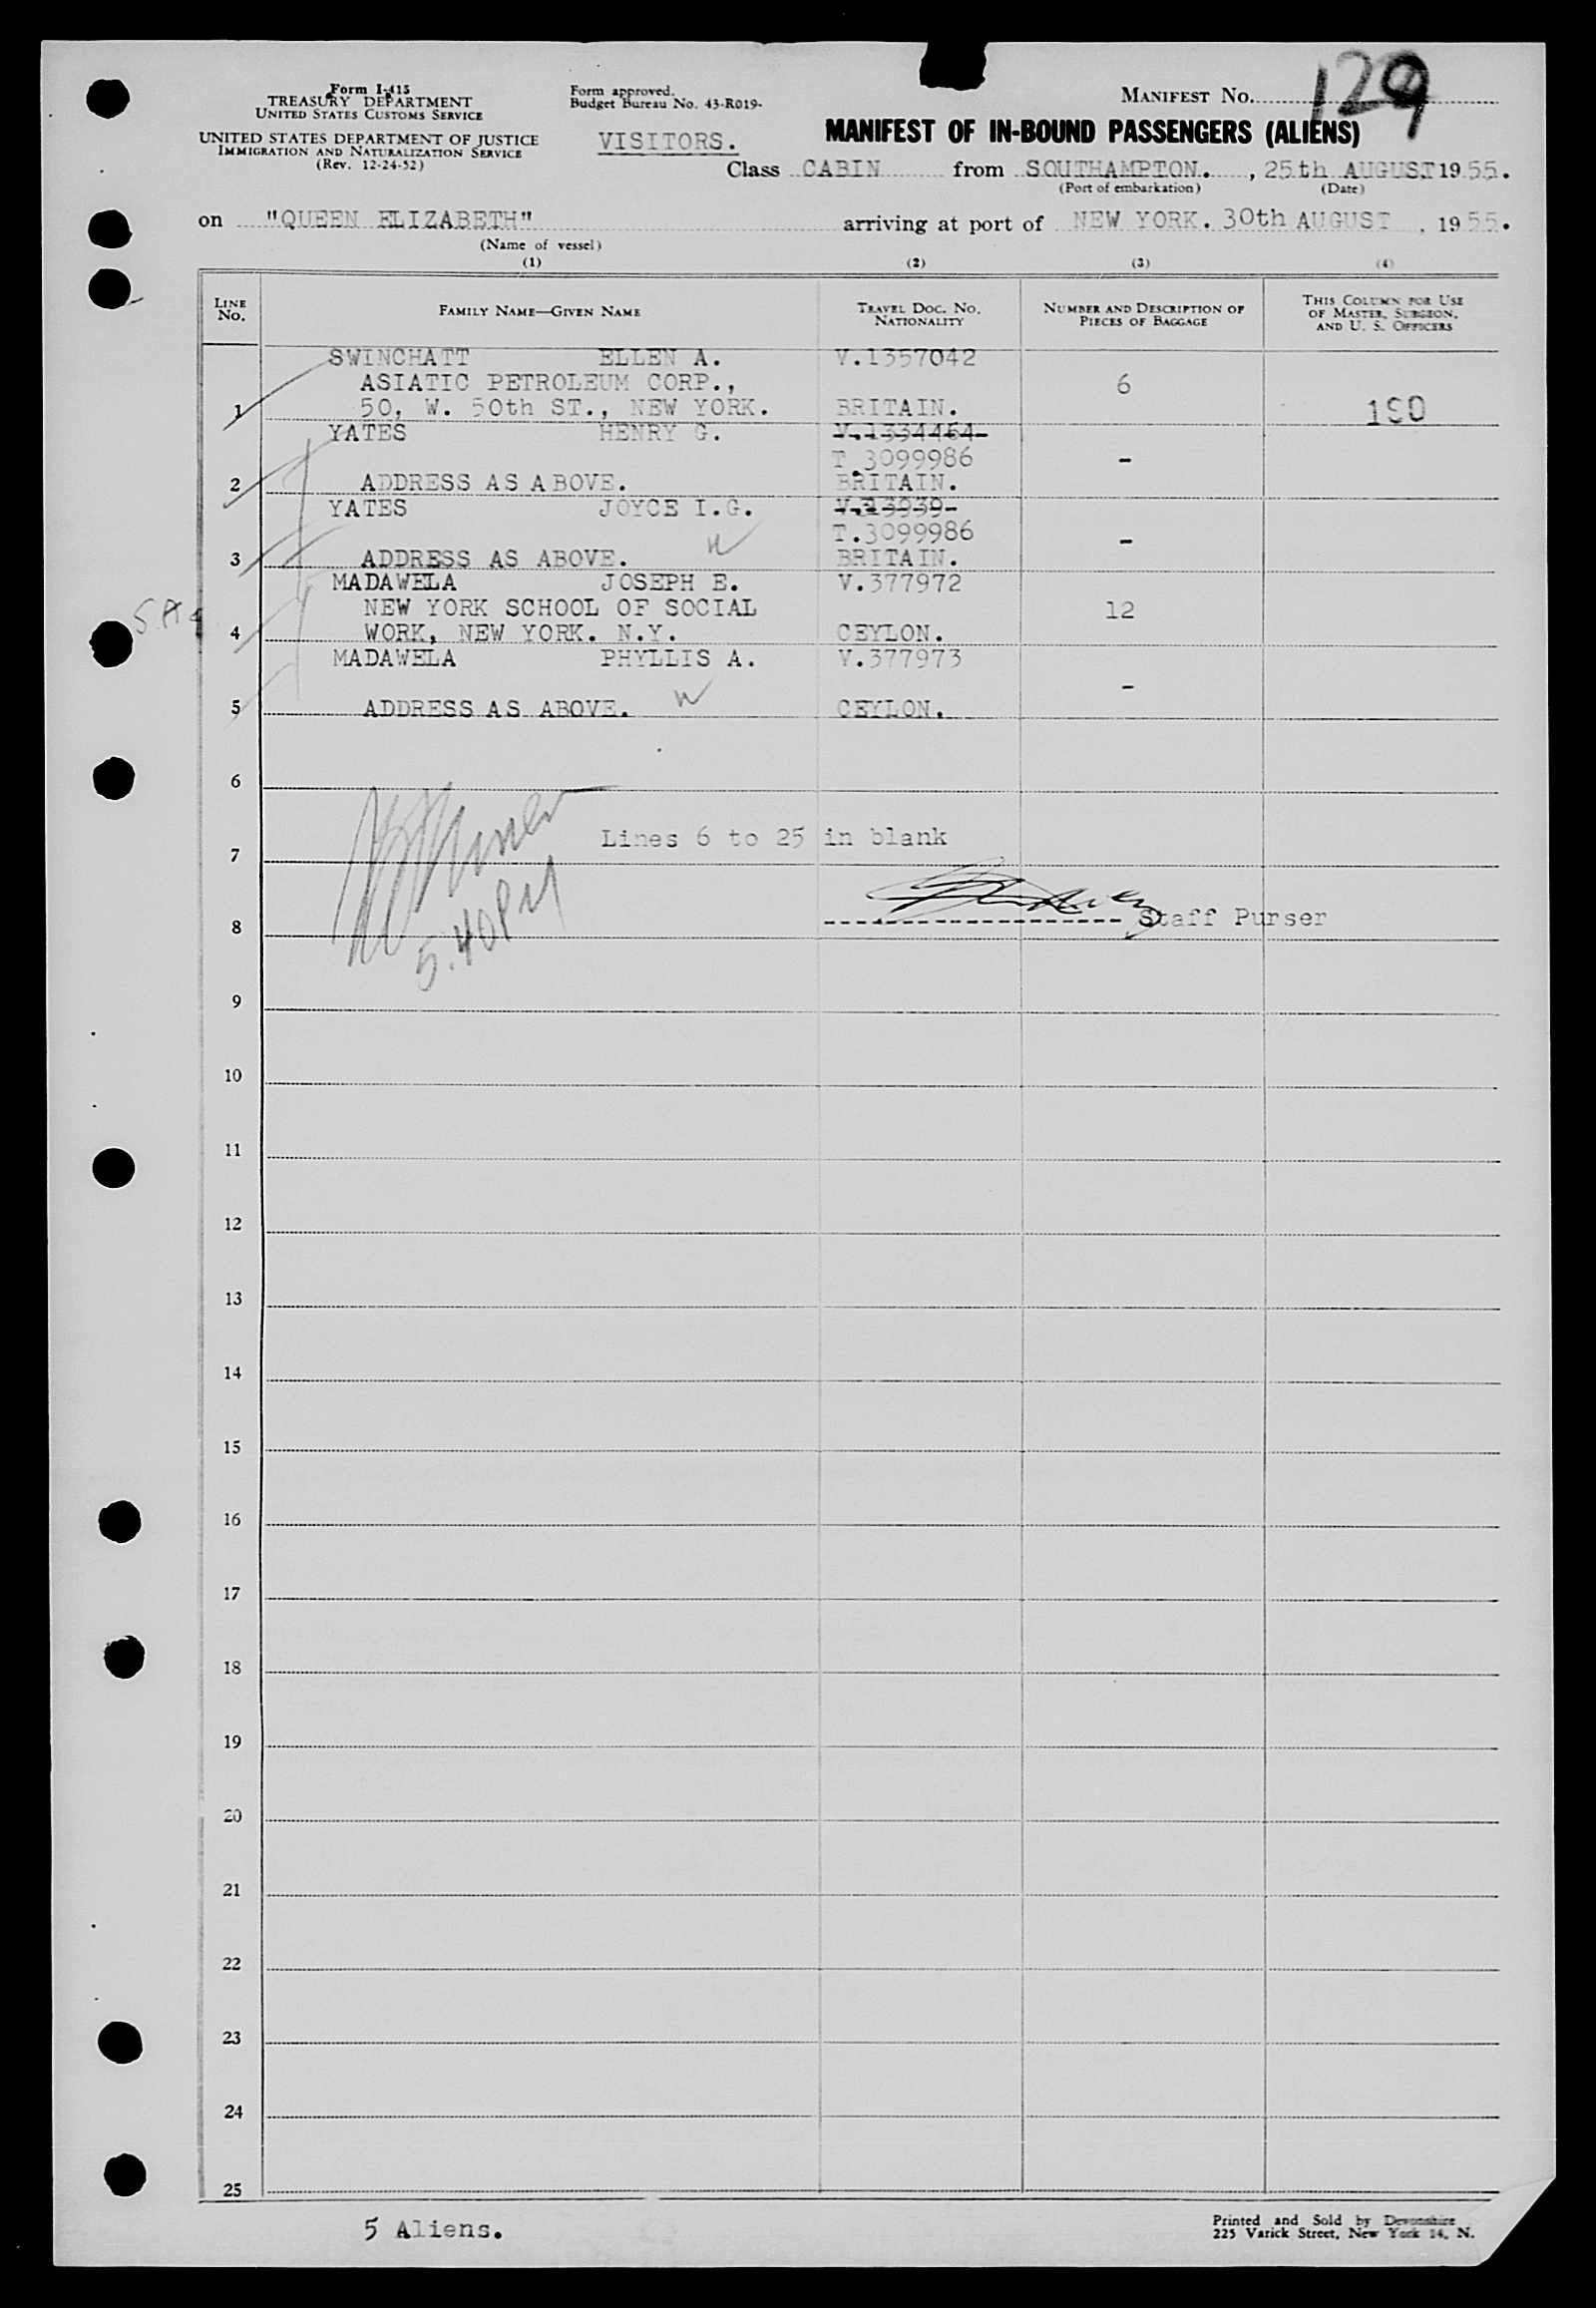 Form I-415
TREASURY DEPARTMENT
UNITED STATES CUSTOMS SERVICE
UNITED STATES DEPARTMENT OF JUSTICE
IMMIGRATION AND NATURALIZATION SERVICE
(Rev. 12-24-52)
Form approved.
Budget Bureau No. 43-R019-
VISITORS.
MANIFEST NO. 129
MANIFEST OF IN-BOUND PASSENGERS (ALIENS)
Class CABIN from SOUTHAMPTON. , 25th AUGUST 1955.
(Port of embarkation) (Date)
on "QUEEN ELIZABETH" arriving at port of NEW YORK. 30th AUGUST , 1955.
(Name of vessel)
(1) (2) (3) (4)
LINE NO. FAMILY NAME—GIVEN NAME TRAVEL DOC. NO. NATIONALITY NUMBER AND DESCRIPTION OF PIECES OF BAGGAGE THIS COLUMN FOR USE OF MASTER, SURGEON, AND U. S. OFFICERS
SWINCHATT ELLEN A. V.1357042
ASIATIC PETROLEUM CORP., 6
1 50, W. 50th ST., NEW YORK. BRITAIN. 190
YATES HENRY G. V.1334464
T.3099986 -
2 ADDRESS AS ABOVE. BRITAIN.
YATES JOYCE I.G. V.13939
T.3099986 -
3 ADDRESS AS ABOVE. BRITAIN.
MADAWELA JOSEPH E. V.377972
NEW YORK SCHOOL OF SOCIAL 12
4 WORK, NEW YORK. N.Y. CEYLON.
MADAWELA PHYLLIS A. V.377973
-
5 ADDRESS AS ABOVE. CEYLON.
6
7 Lines 6 to 25 in blank
8 Staff Purser
5.40PM
9
10
11
12
13
14
15
16
17
18
19
20
21
22
23
24
25
5 Aliens.
Printed and Sold by Devonshire
225 Varick Street, New York 14, N.